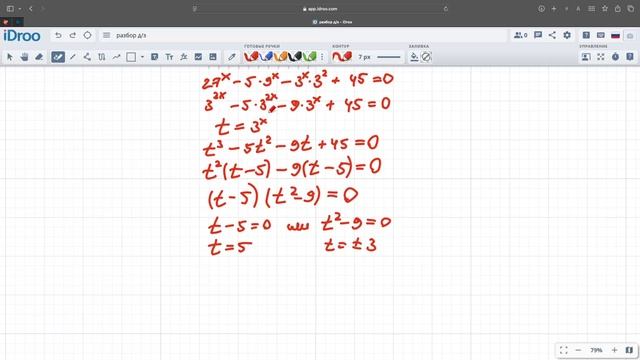 app.idroo.com
разбор д/з - iDroo
iDroo
разбор д/з
ГОТОВЫЕ РУЧКИ
КОНТУР
7 px
ЗАЛИВКА
27ˣ - 5 · 9ˣ - 3ˣ · 3² + 45 = 0
3³ˣ - 5 · 3²ˣ - 9 · 3ˣ + 45 = 0
t = 3ˣ
t³ - 5t² - 9t + 45 = 0
t²(t - 5) - 9(t - 5) = 0
(t - 5) (t² - 9) = 0
t - 5 = 0 или t² - 9 = 0
t = 5 t = ± 3
79%